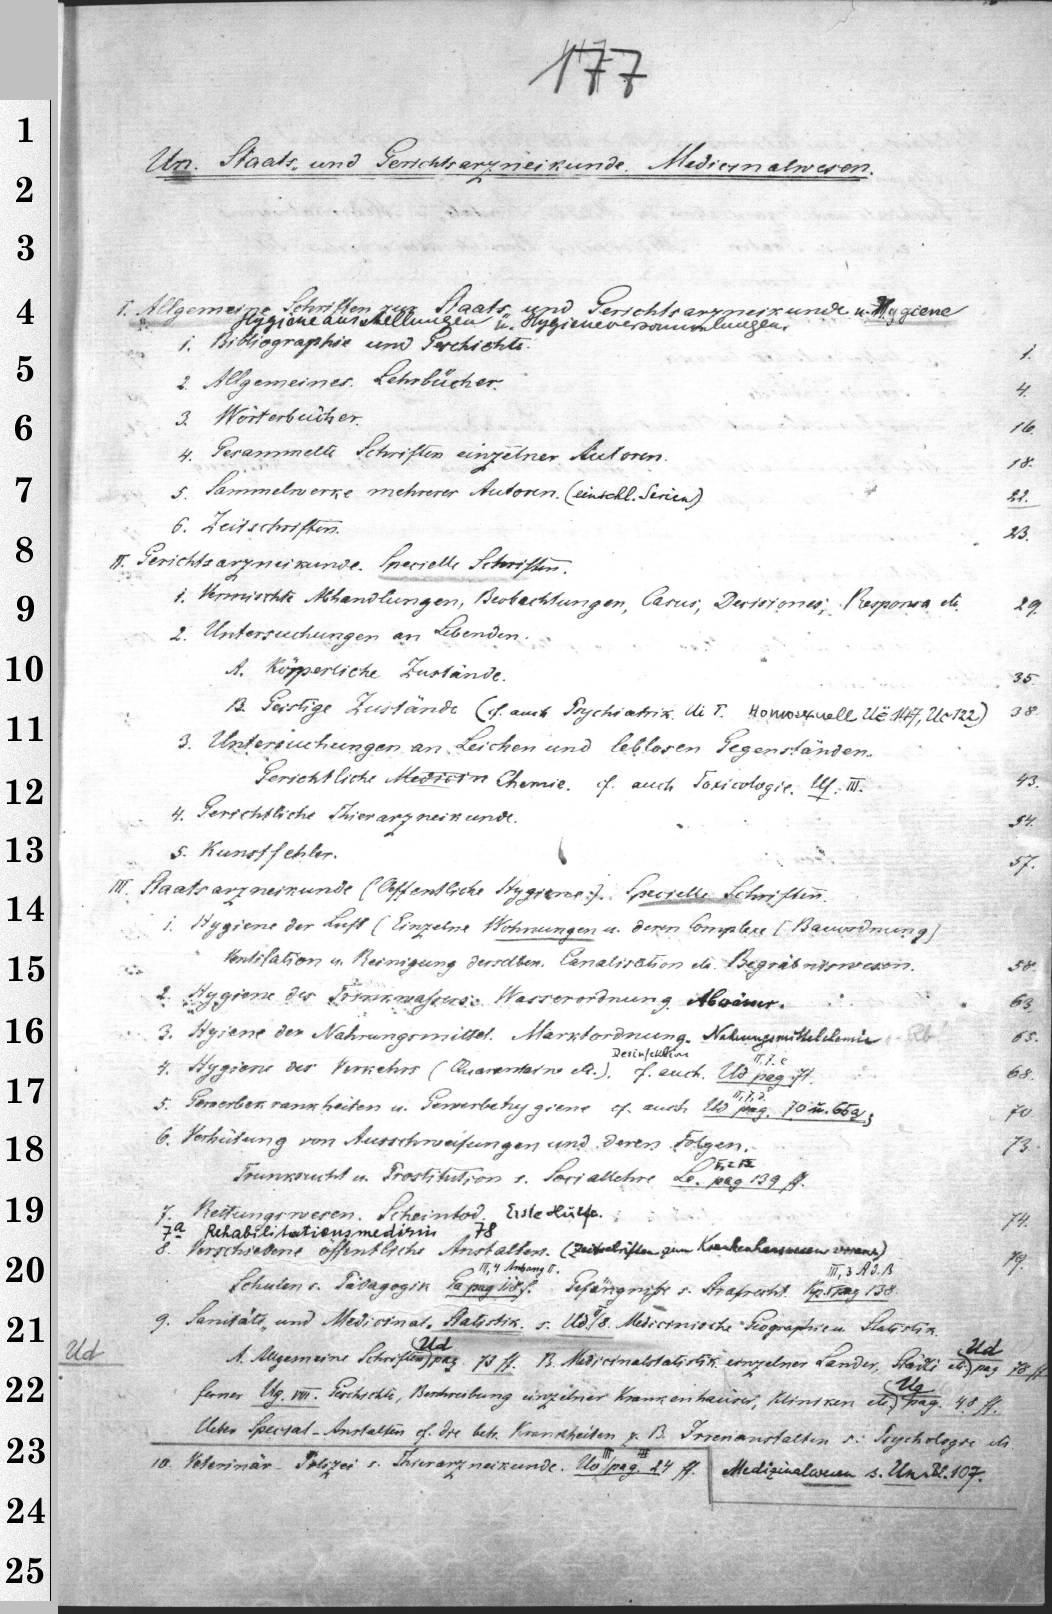 177
Un. Staats- und Gerichtsarzneikunde. Medicinalwesen.
I. Allgemeine Schriften zur Staats- und Gerichtsarzneikunde u. Hygiene
Hygieneausstellungen u. Hygieneversammlungen.
1. Bibliographie und Geschichte. 1.
2. Allgemeines. Lehrbücher. 4.
3. Wörterbücher. 16.
4. Gesammelte Schriften einzelner Autoren. 18.
5. Sammelwerke mehrerer Autoren. (einschl. Serien) 22.
6. Zeitschriften. 23.
II. Gerichtsarzneikunde. Specielle Schriften.
1. Vermischte Abhandlungen, Beobachtungen, Casus, Decisiones, Responsa etc. 29.
2. Untersuchungen an Lebenden.
A. Körperliche Zustände. 35.
B. Geistige Zustände (cf. auch Psychiatrik. Ui I. Homosexuell Uë 147, Uc 122) 38.
3. Untersuchungen an Leichen und leblosen Gegenständen.
Gerichtliche Medicin Chemie. cf. auch Toxicologie. Uf. III. 43.
4. Gerichtliche Thierarzneikunde. 54.
5. Kunstfehler. 57.
III. Staatsarzneikunde (Oeffentliche Hygiene). Specielle Schriften.
1. Hygiene der Luft (Einzelne Wohnungen u. deren Complexe (Bauordnung)
Ventilation u. Reinigung derselben. Canalisation etc. Begräbniswesen. 58.
2. Hygiene des Trinkwassers. Wasserordnung. Abwässer. 63.
3. Hygiene der Nahrungsmittel. Marktordnung. Nahrungsmittelchemie 65.
Desinfektion II, 7. c
4. Hygiene des Verkehrs (Quarantaine etc.). cf. auch. Ud pag ff. 68.
II, 7, 2.
5. Gewerbekrankheiten u. Gewerbehygiene cf. auch Ud pag. 70 u. 66a; 70.
6. Verhütung von Ausschweifungen und deren Folgen. 73.
Trunksucht u. Prostitution s. Sociallehre Le. pag 139 ff.
7. Rettungswesen. Scheintod. Erste Hülfe. 74.
7a Rehabilitationsmedizin 78
8. Verschiedene öffentliche Anstalten. (Zeitschriften zum Krankenhauswesen voran) 79.
III, 4 Anhang II. III, 3 A I. B
Schulen s. Pädagogik Ga pag 118 f. Gefängnisse s. Strafrecht. Kp. pag 138
9. Sanitäts- und Medicinal-Statistik. s. Ud. I/8. Medicinische Geographie u. Statistik.
Ud A. Allgemeine Schriften (Ud) pag. 73 ff. B. Medicinalstatistik einzelner Länder, Städte etc. (Ud) pag 78 ff
ferner Ug. VIII. Geschichte, Beschreibung einzelner Krankenhäuser, Kliniken etc. (Ug) pag. 48 ff.
Ueber Special-Anstalten cf. die betr. Krankheiten z. B. Irrenanstalten s. Psychologie etc
10. Veterinär-Polizei s. Thierarzneikunde. Uo III pag. 24 ff.
Medizinalwesen s. Un. Bl. 107.
1
2
3
4
5
6
7
8
9
10
11
12
13
14
15
16
17
18
19
20
21
22
23
24
25